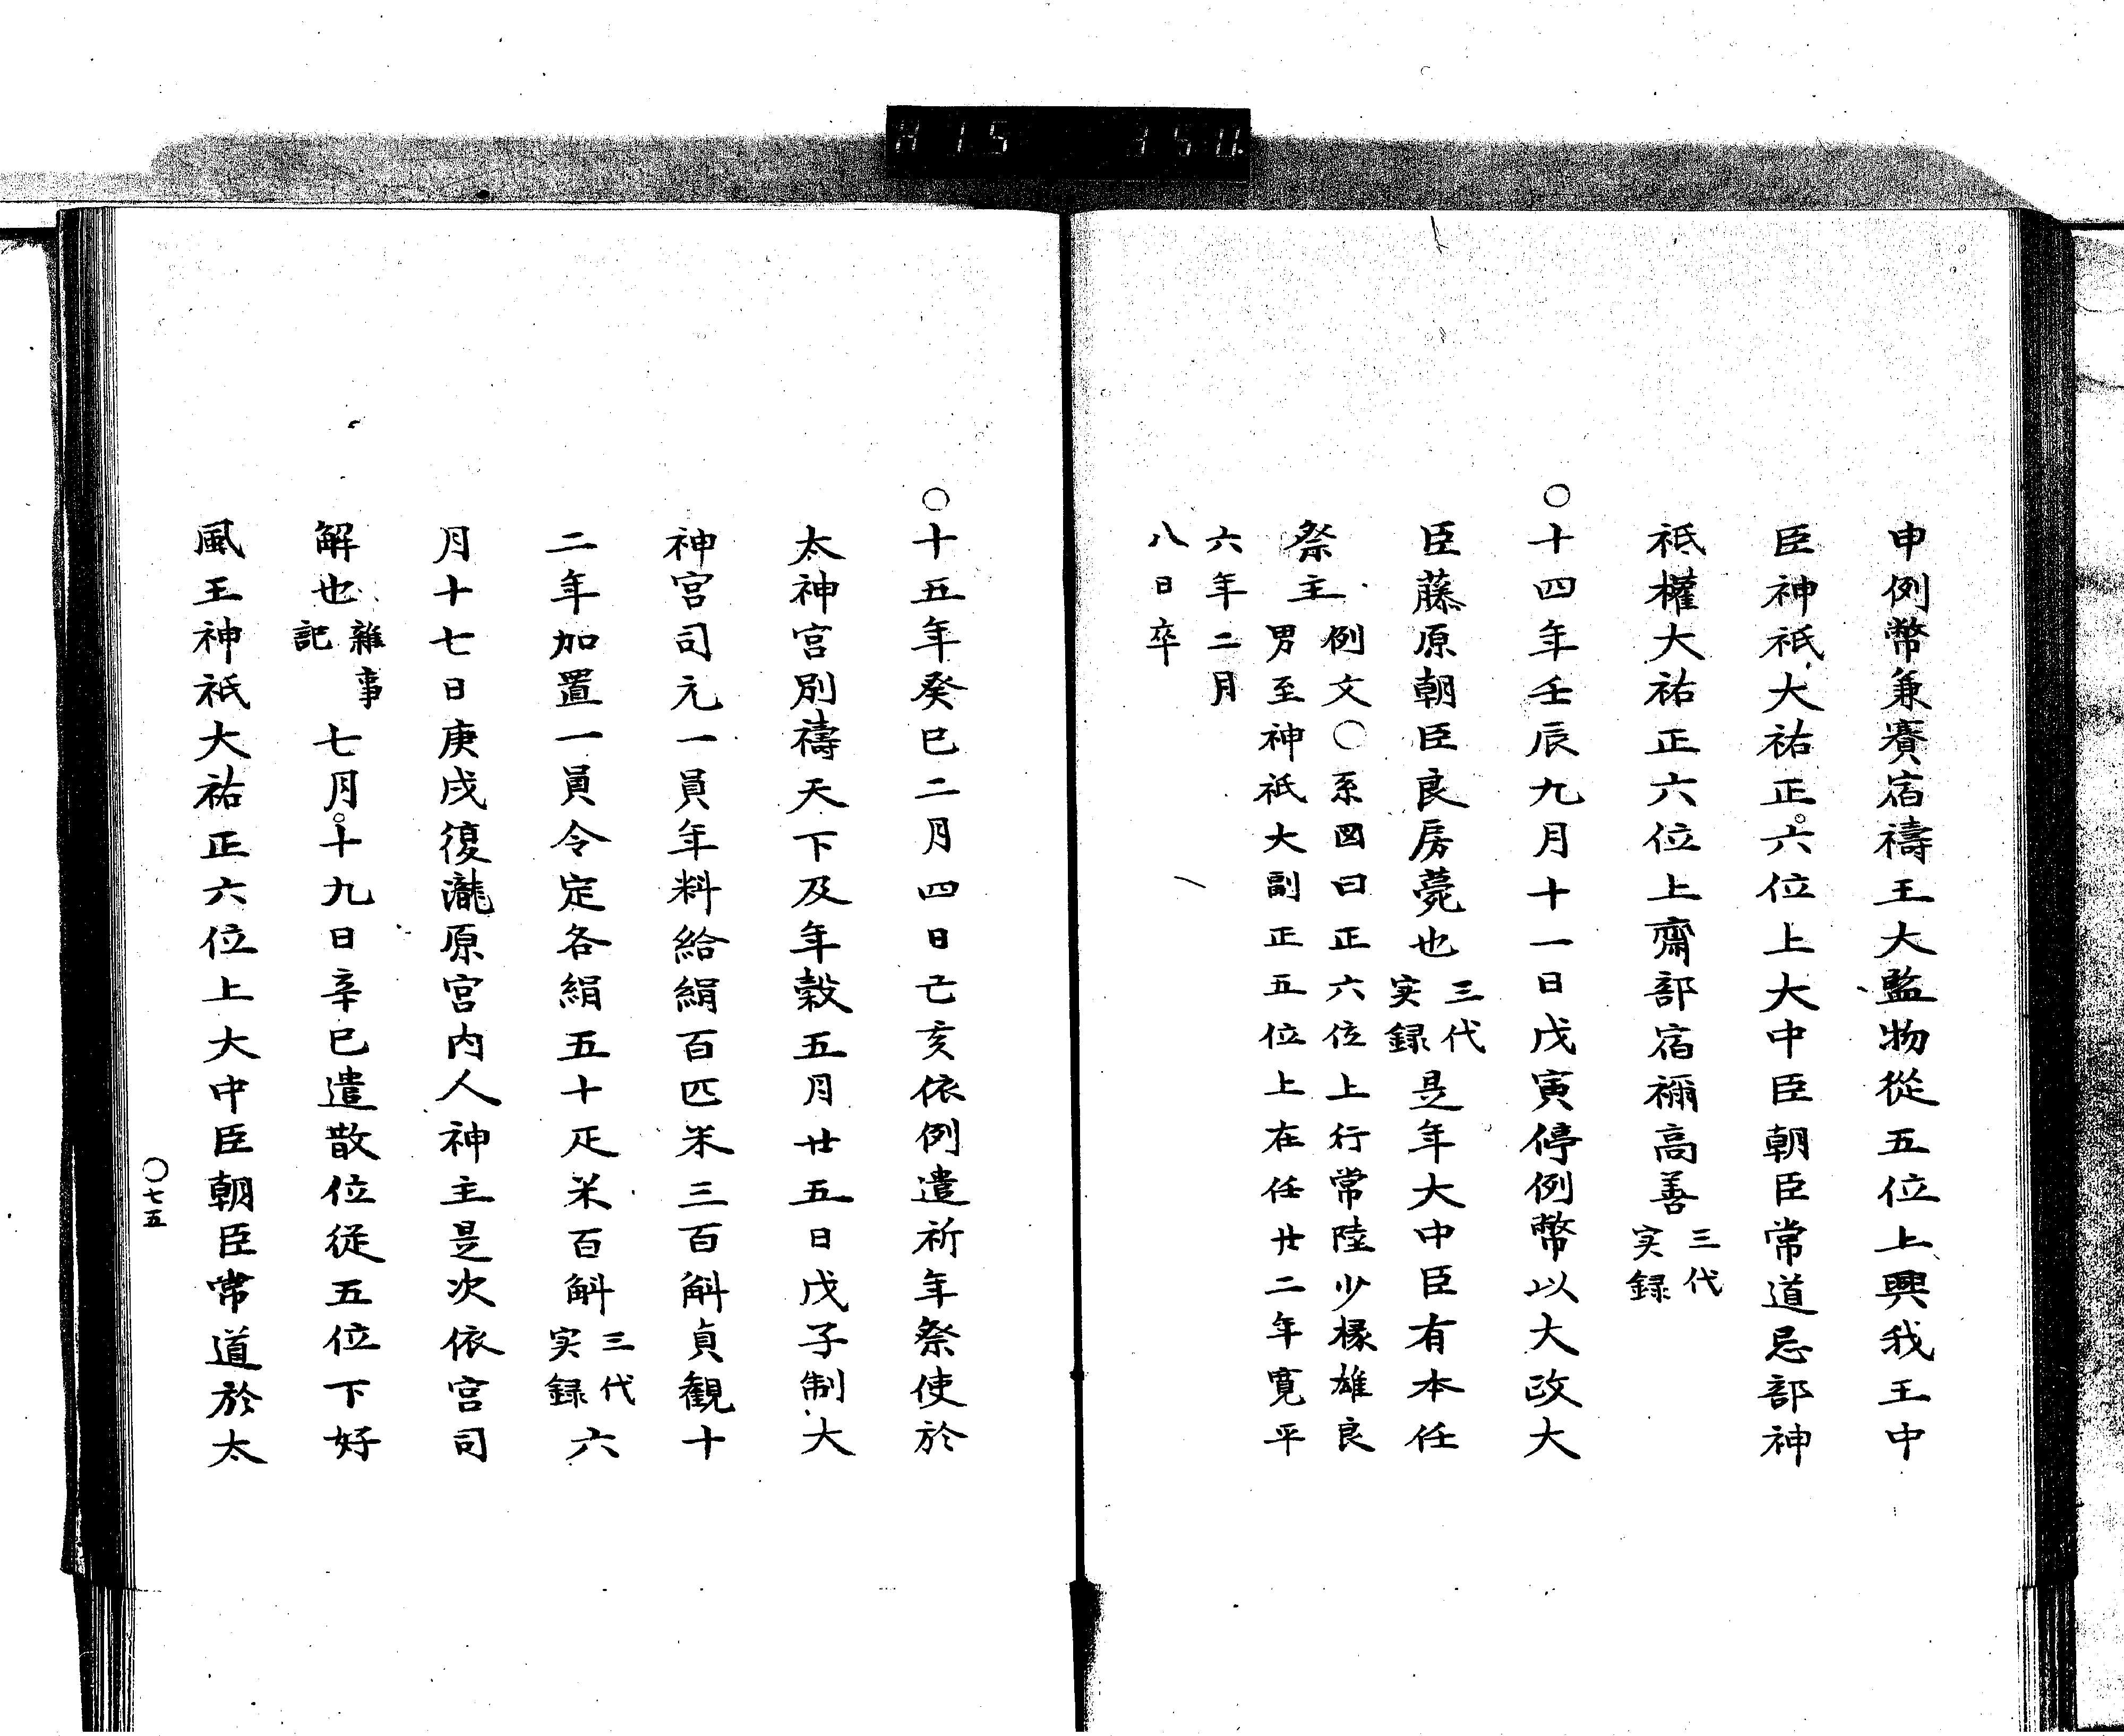 申例幣兼賽宿禱王大監物從五位上興我王中
臣神祇大祐正六位上大中臣朝臣常道忌部神
祇權大祐正六位上齋部宿禰高善三代実録
○十四年壬辰九月十一日戊寅停例幣以大政大
臣藤原朝臣良房薨也三代実録是年大中臣有本任
祭主例文○系図曰正六位上行常陸少椽雄良
男至神祇大副正五位上在任廿二年寛平
六年二月
八日卒
○十五年癸巳二月四日己亥依例遣祈年祭使於
太神宮別禱天下及年穀五月廿五日戊子制大
神宮司元一員年料給絹百匹米三百斛貞観十
二年加置一員令定各絹五十疋米百斛三代実録六
月十七日庚戌復瀧原宮内人神主是次依宮司
解也雜事記七月十九日辛巳遣散位従五位下好
風王神祇大祐正六位上大中臣朝臣常道於太
○七五
H15 350